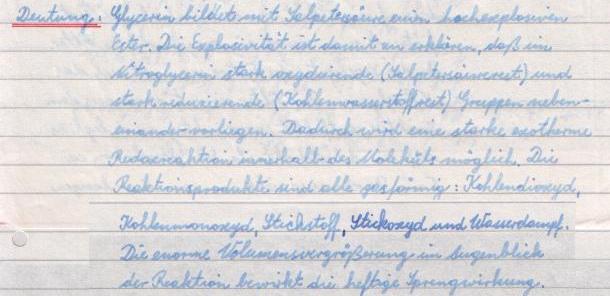 Deutung: Glycerin bildet mit Salpetersäure einen hochexplosiven
Ester. Die Explosivität ist damit zu erklären, daß im
Nitroglycerin stark oxydierende (Salpetersäurerest) und
stark reduzierende (Kohlenwasserstoffrest) Gruppen neben-
einander vorliegen. Dadurch wird eine starke exotherme
Redoxreaktion innerhalb des Moleküls möglich. Die
Reaktionsprodukte sind alle gasförmig: Kohlendioxyd,
Kohlenmonoxyd, Stickstoff, Stickoxyd und Wasserdampf.
Die enorme Volumensvergrößerung im Augenblick
der Reaktion bewirkt die heftige Sprengwirkung.